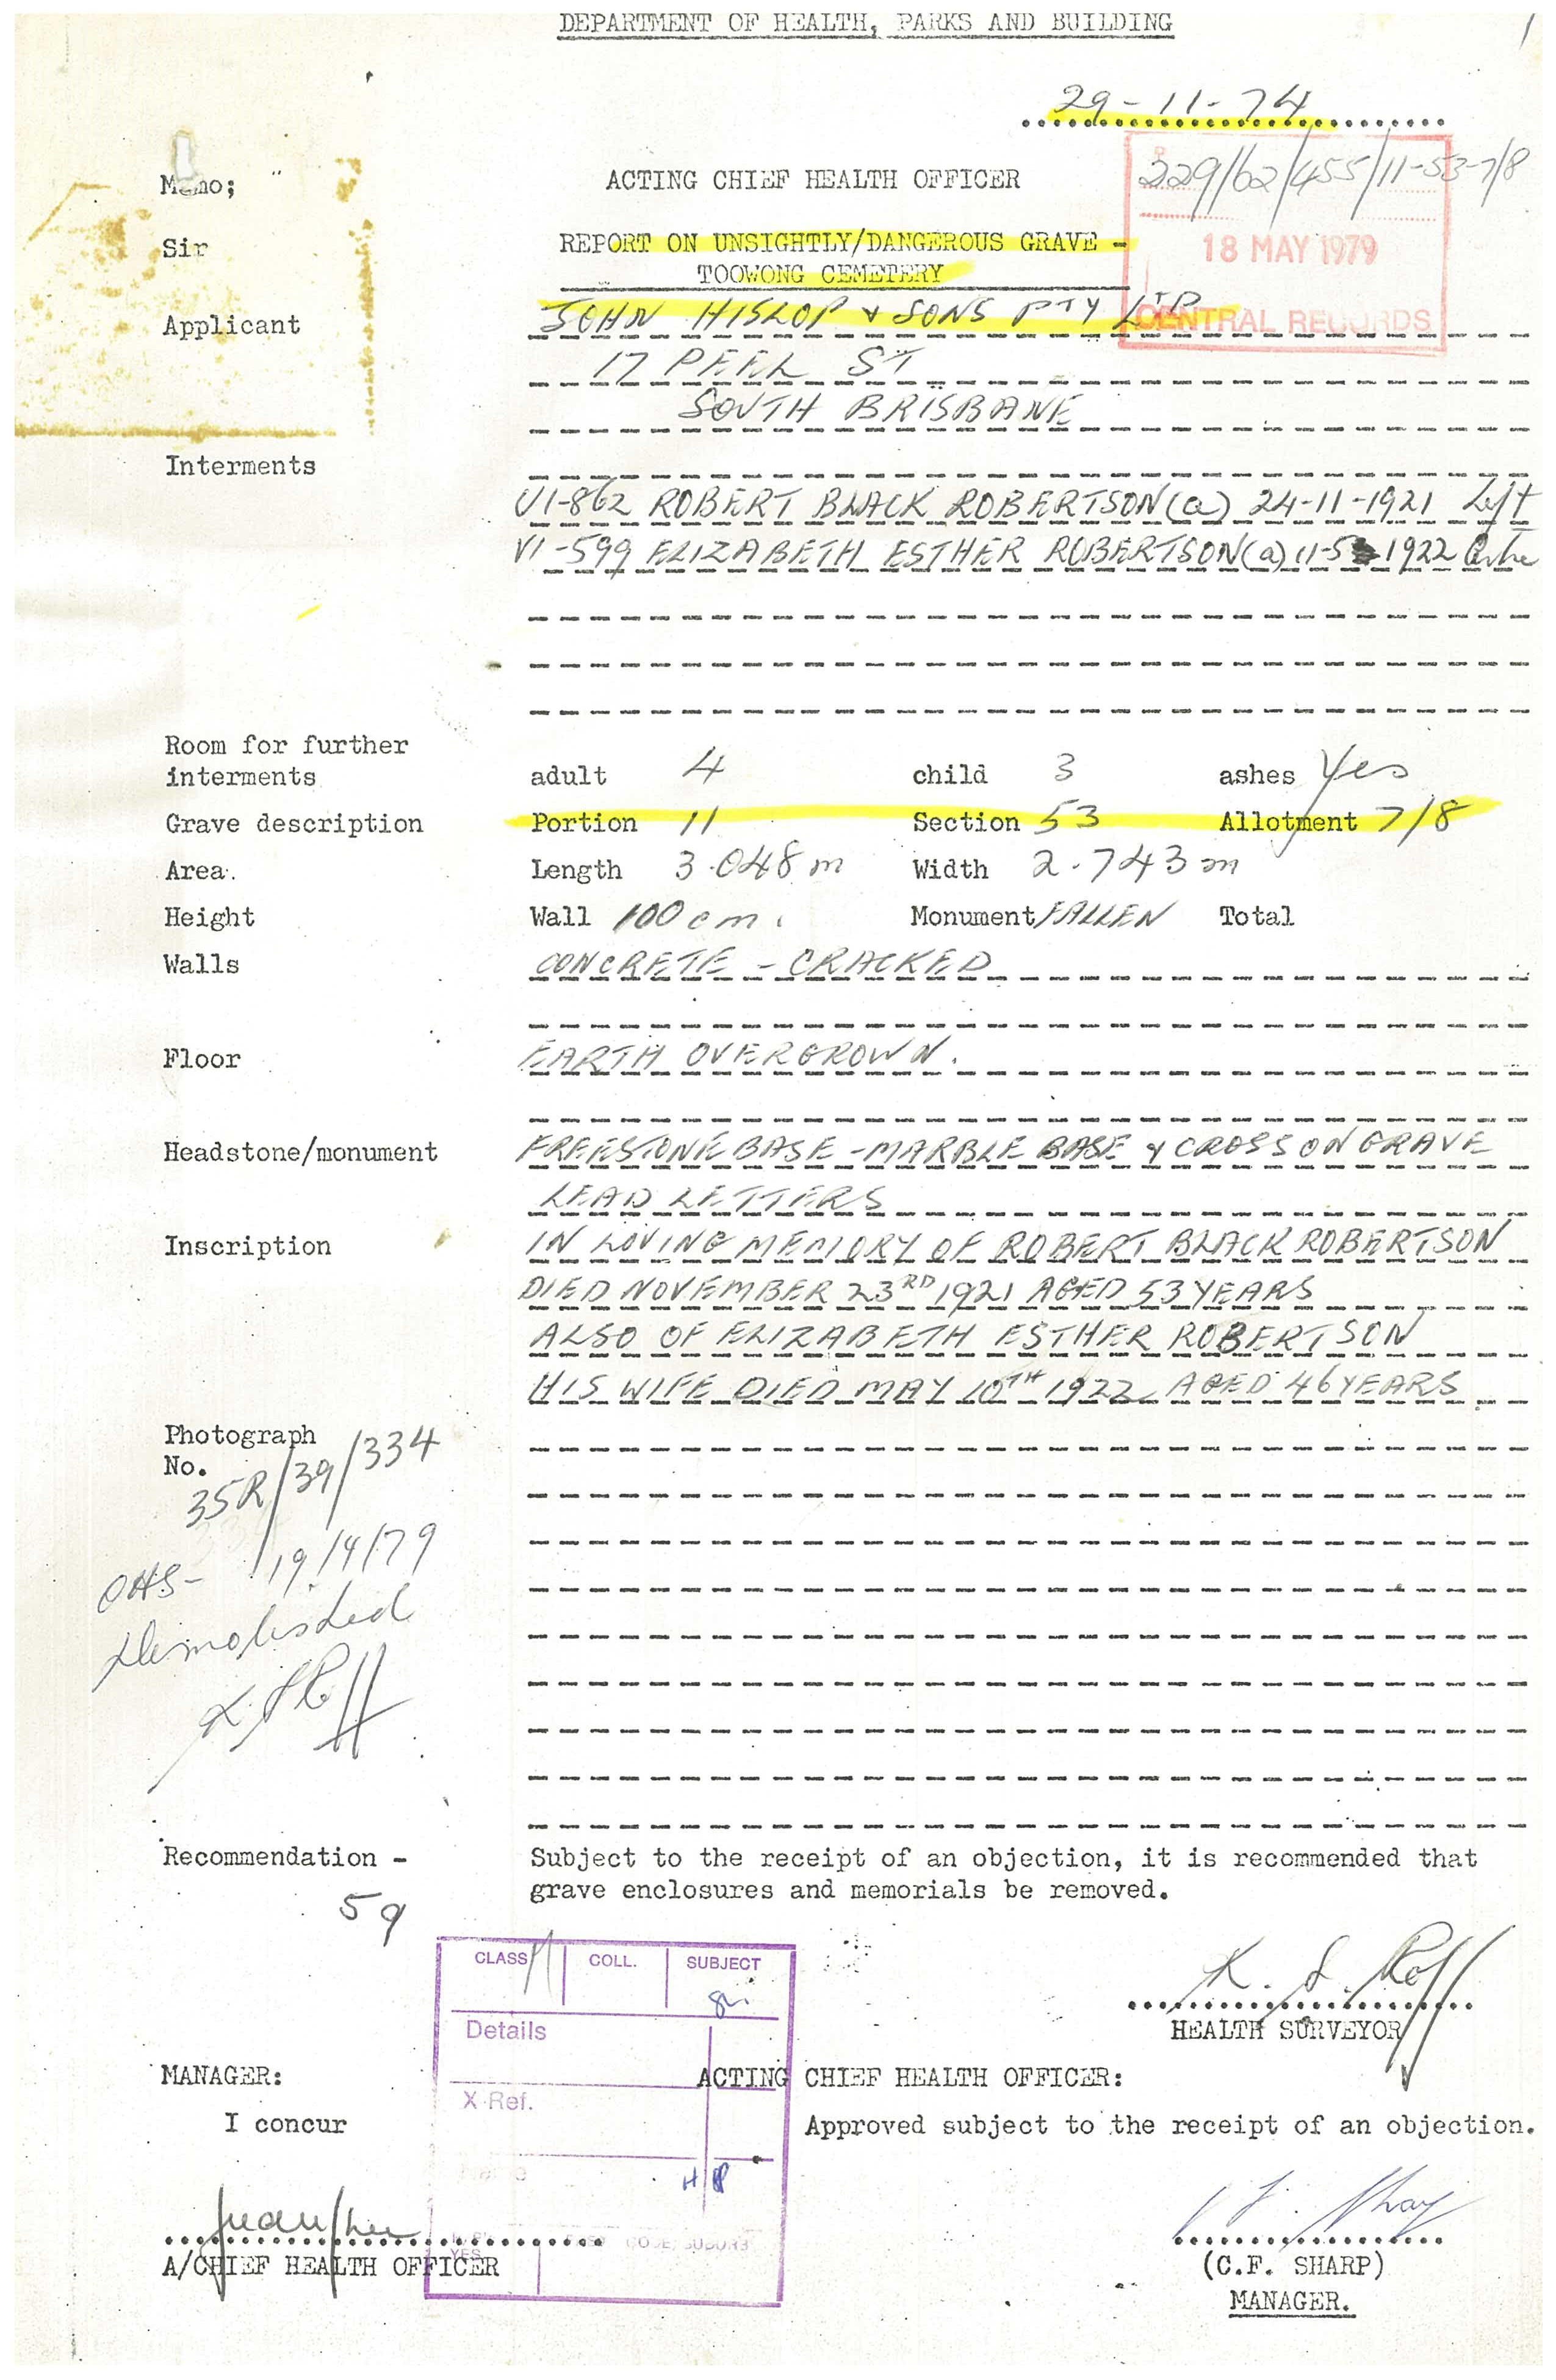 DEPARTMENT OF HEALTH, PARKS AND BUILDING
29-11-74
229/62/455/11-53-7/8
Memo;
ACTING CHIEF HEALTH OFFICER
Sir
REPORT ON UNSIGHTLY/DANGEROUS GRAVE -
TOOWONG CEMETERY
18 MAY 1979
CENTRAL RECORDS
Applicant JOHN HISLOP & SONS PTY LTD
17 PEEL ST
SOUTH BRISBANE
Interments
VI-862 ROBERT BLACK ROBERTSON (a) 24-11-1921 Left
VI-599 ELIZABETH ESTHER ROBERTSON (a) 11-5-1922 Centre
Room for further
interments adult 4 child 3 ashes Yes
Grave description Portion 11 Section 53 Allotment 7/8
Area. Length 3.048m Width 2.743m
Height Wall 100cm. Monument FALLEN Total
Walls CONCRETE - CRACKED
Floor EARTH OVERGROWN.
Headstone/monument FREESTONE BASE - MARBLE BASE & CROSS ON GRAVE
LEAD LETTERS
Inscription IN LOVING MEMORY OF ROBERT BLACK ROBERTSON
DIED NOVEMBER 23RD 1921 AGED 53 YEARS
ALSO OF ELIZABETH ESTHER ROBERTSON
HIS WIFE DIED MAY 10TH 1922 AGED 46 YEARS
Photograph
No.
35R/39/334
19/4/79
Demolished
Recommendation - Subject to the receipt of an objection, it is recommended that
grave enclosures and memorials be removed.
59
CLASS COLL. SUBJECT
Details
X-Ref.
K. J. Roff
HEALTH SURVEYOR
MANAGER: ACTING CHIEF HEALTH OFFICER:
I concur Approved subject to the receipt of an objection.
A/CHIEF HEALTH OFFICER
YES
(C.F. SHARP)
MANAGER.